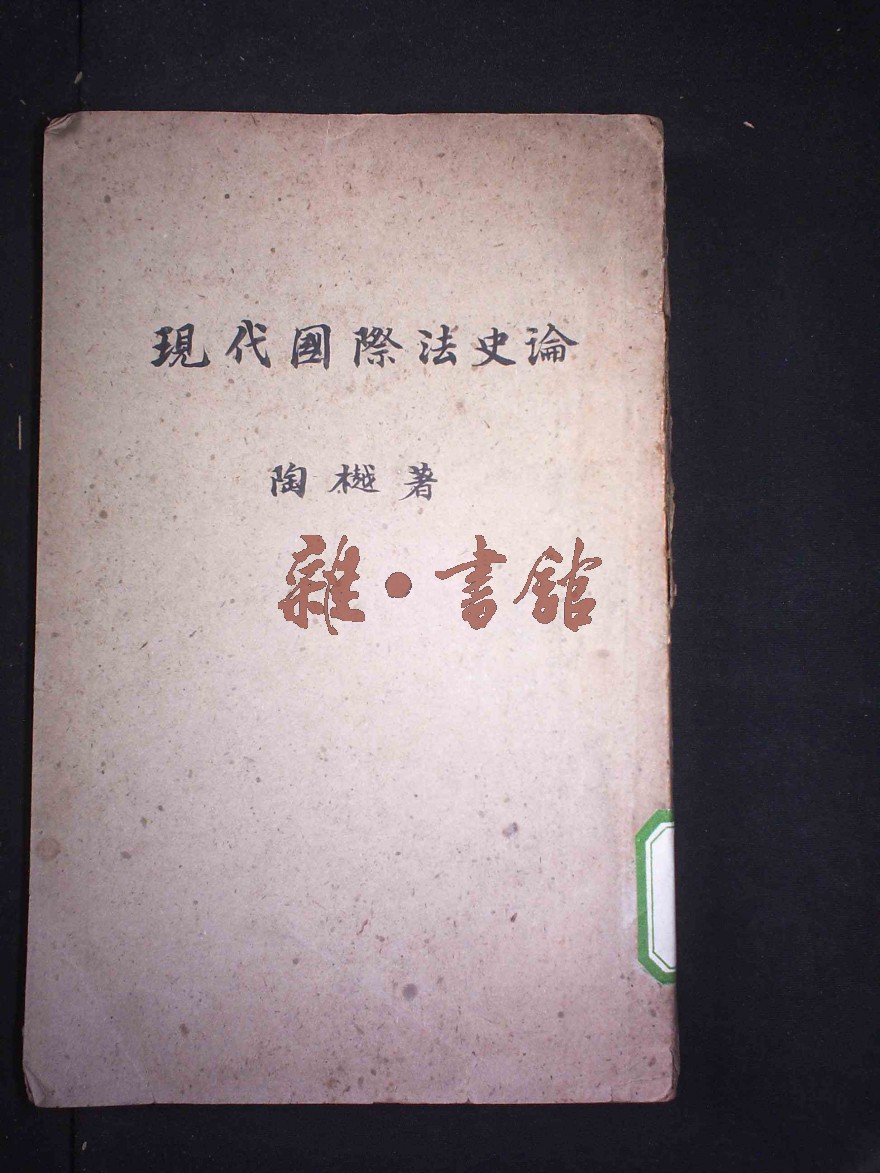 現代國際法史論
陶樾著
雜·書館